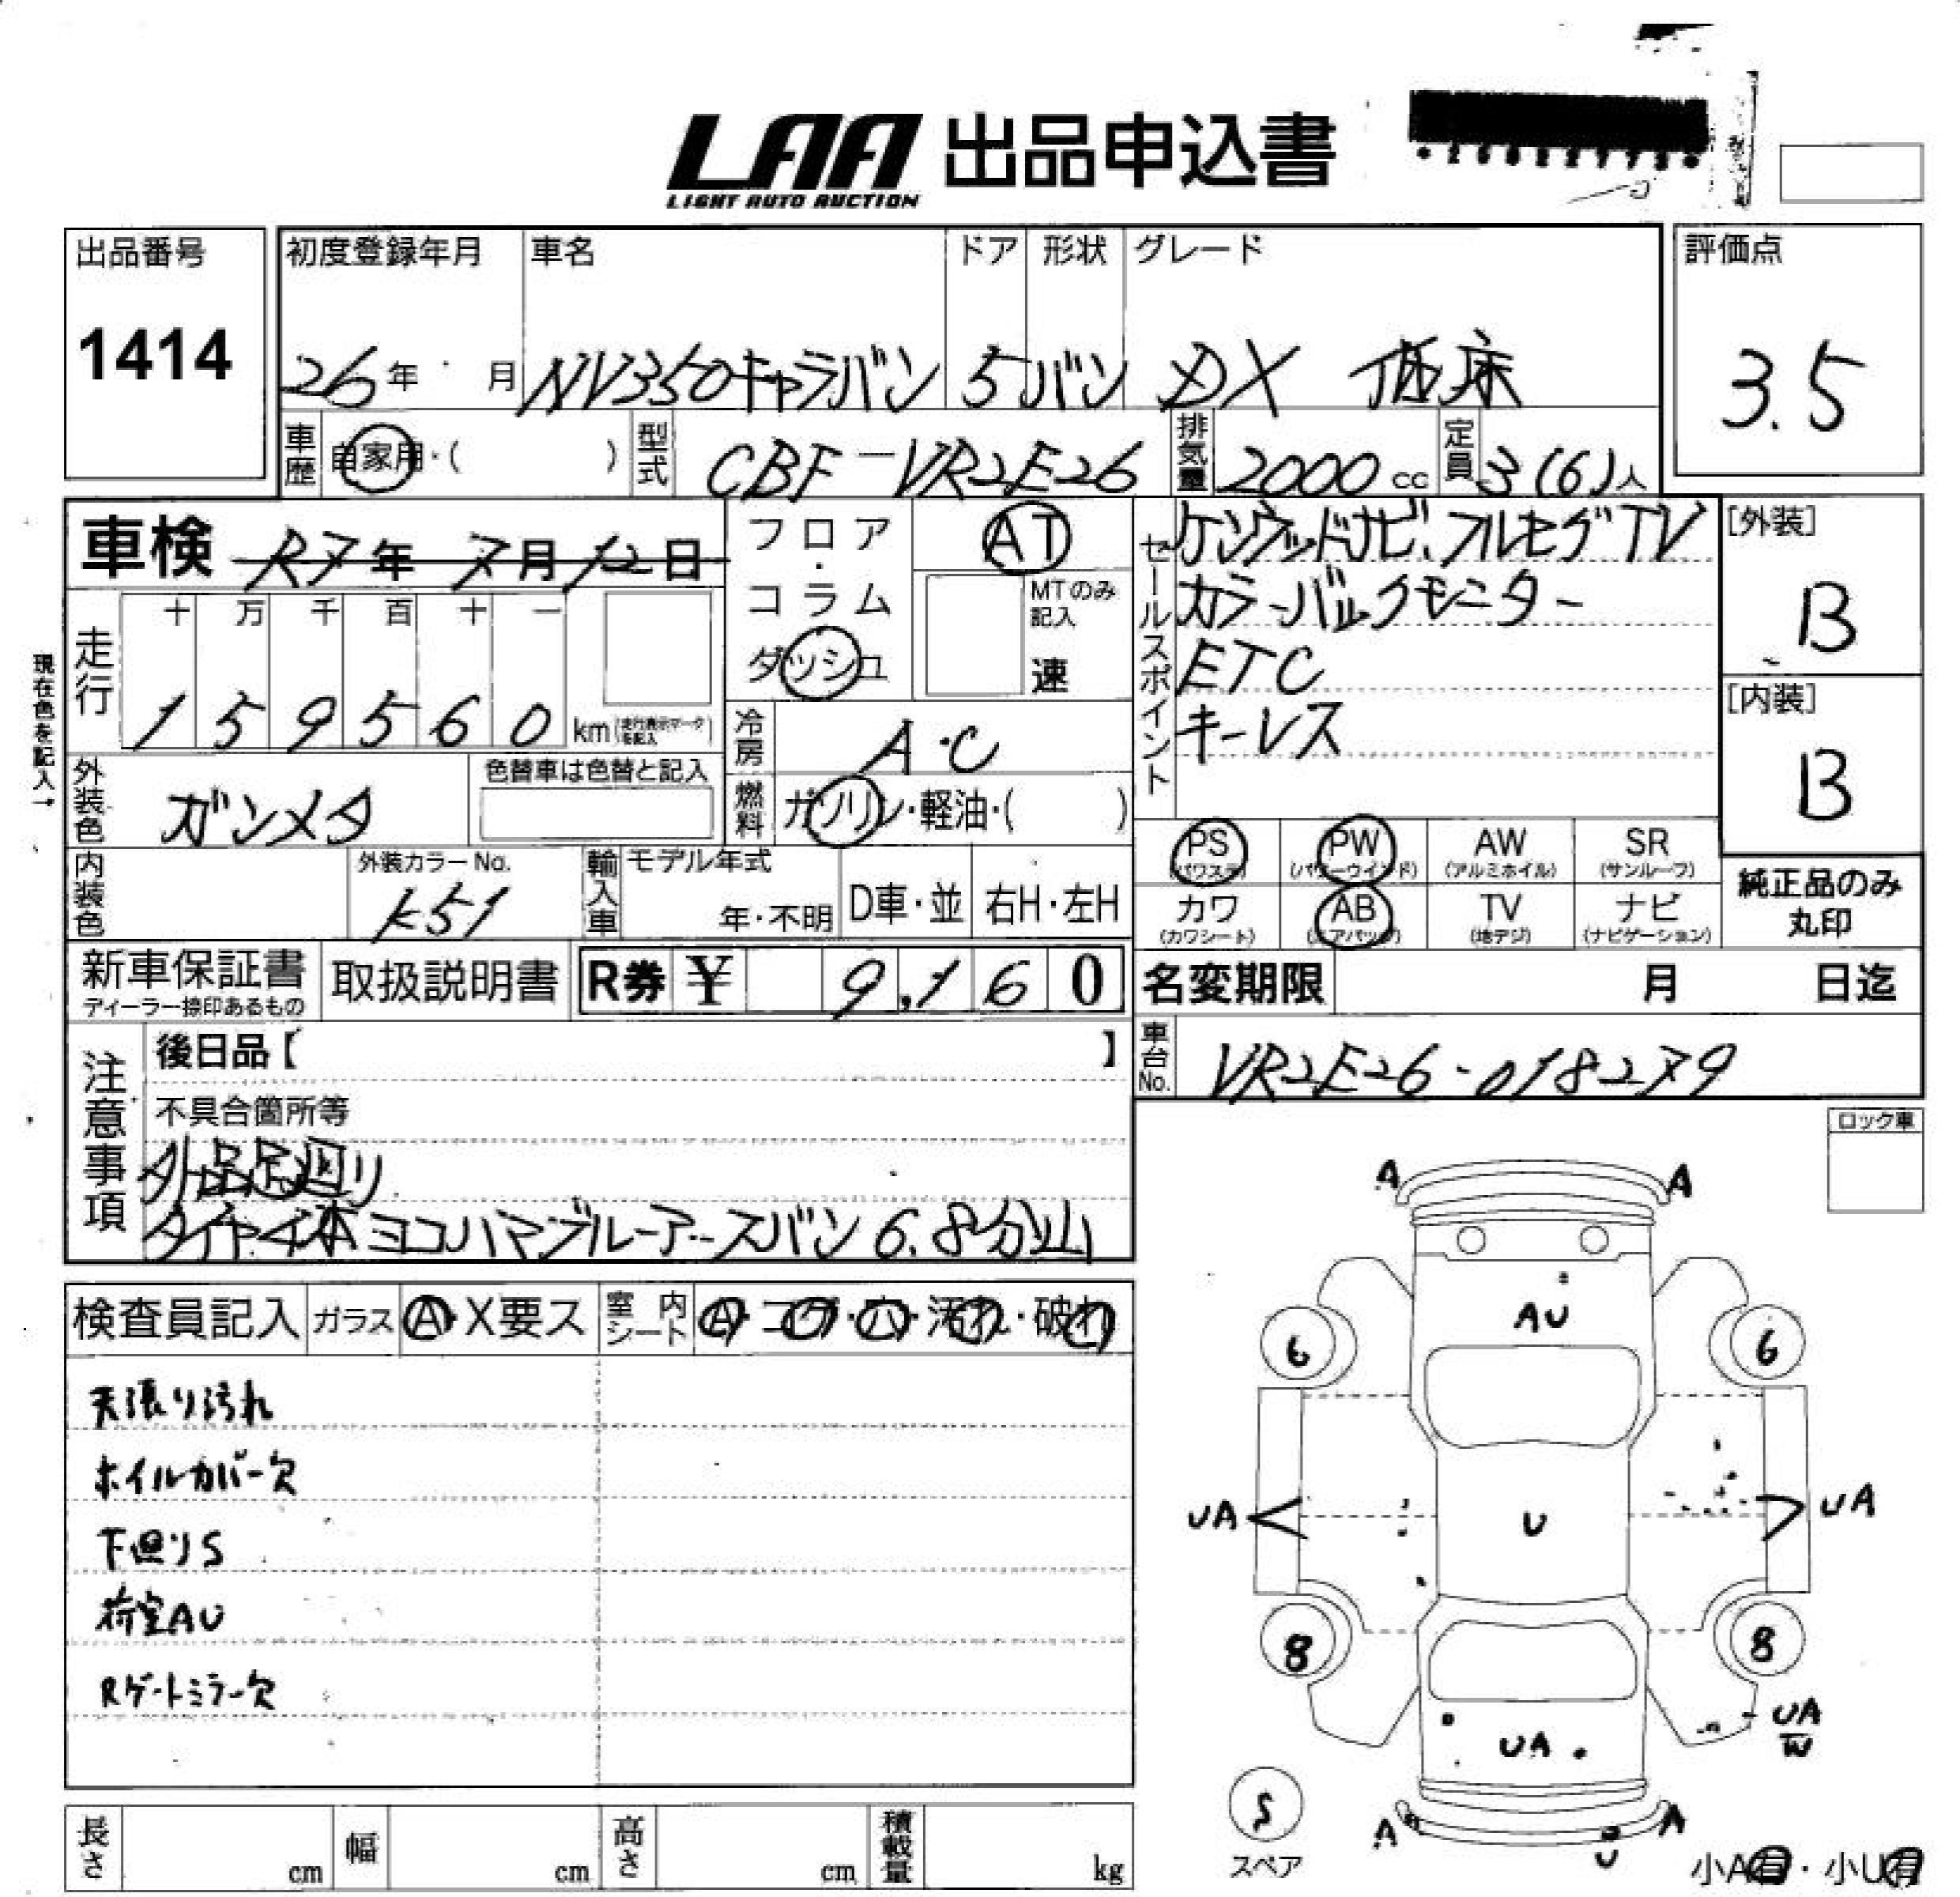 LAA 出品申込書
LIGHT AUTO AUCTION
出品番号
1414
初度登録年月 車名 ドア 形状 グレード
26年 月 NV350キャラバン 5 バン DX 低床
評価点
3.5
車歴 自家用・( ) 型式 CBF-VR2E26 排気量 2000cc 定員 3(6)人
車検 R7年7月12日
フロア・コラム ダッシュ
AT
MTのみ記入
速
セールスポイント
ケンウッドナビ、フルセグTV
カラーバックモニター
ETC
キーレス
[外装]
B
[内装]
B
現在色を記入→
走行 十 万 千 百 十 一
1 5 9 5 6 0 km (走行表示マークを記入)
冷房 A・C
燃料 ガソリン・軽油・( )
外装色 ガンメタ 色替車は色替と記入
内装色 外装カラーNo. K51
輸入車 モデル年式 年・不明 D車・並 右H・左H
PS (パワステ) PW (パワーウインド) AW (アルミホイル) SR (サンルーフ)
カワ (カワシート) AB (エアバッグ) TV (地デジ) ナビ (ナビゲーション)
純正品のみ丸印
新車保証書 ディーラー捺印あるもの 取扱説明書 R券 ¥ 9,160
名変期限 月 日迄
車台No. VR2E26-018279
注意事項
後日品【 】
不具合箇所等
外品足廻り
タイヤ4本ヨコハマブルーアースバン 6.8分山
ロック車
検査員記入 ガラス A・X要ス 室内シート A・コゲ・穴・汚れ・破れ
天張り汚れ
ホイルカバー欠
下廻りS
荷室AU
Rゲートミラー欠
A A
AU
6 6
UA U UA
8 8
UA
UA
W
S
スペア
A A
U
小A有・小U有
長さ cm 幅 cm 高さ cm 積載量 kg